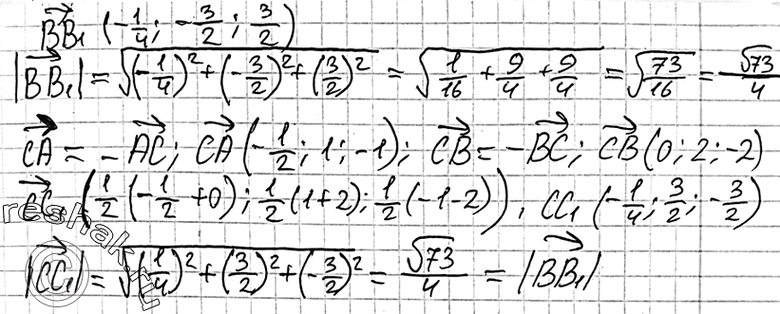 BB₁ (-1/4; -3/2; 3/2)
|BB₁| = √((-1/4)² + (-3/2)² + (3/2)²) = √(1/16 + 9/4 + 9/4) = √(73/16) = √73/4
CA = -AC; CA (-1/2; 1; -1); CB = -BC; CB (0; 2; -2)
CC₁ (1/2 (-1/2 + 0); 1/2 (1+2); 1/2 (-1-2)), CC₁ (-1/4; 3/2; -3/2)
|CC₁| = √((1/4)² + (3/2)² + (-3/2)²) = √73/4 = |BB₁|